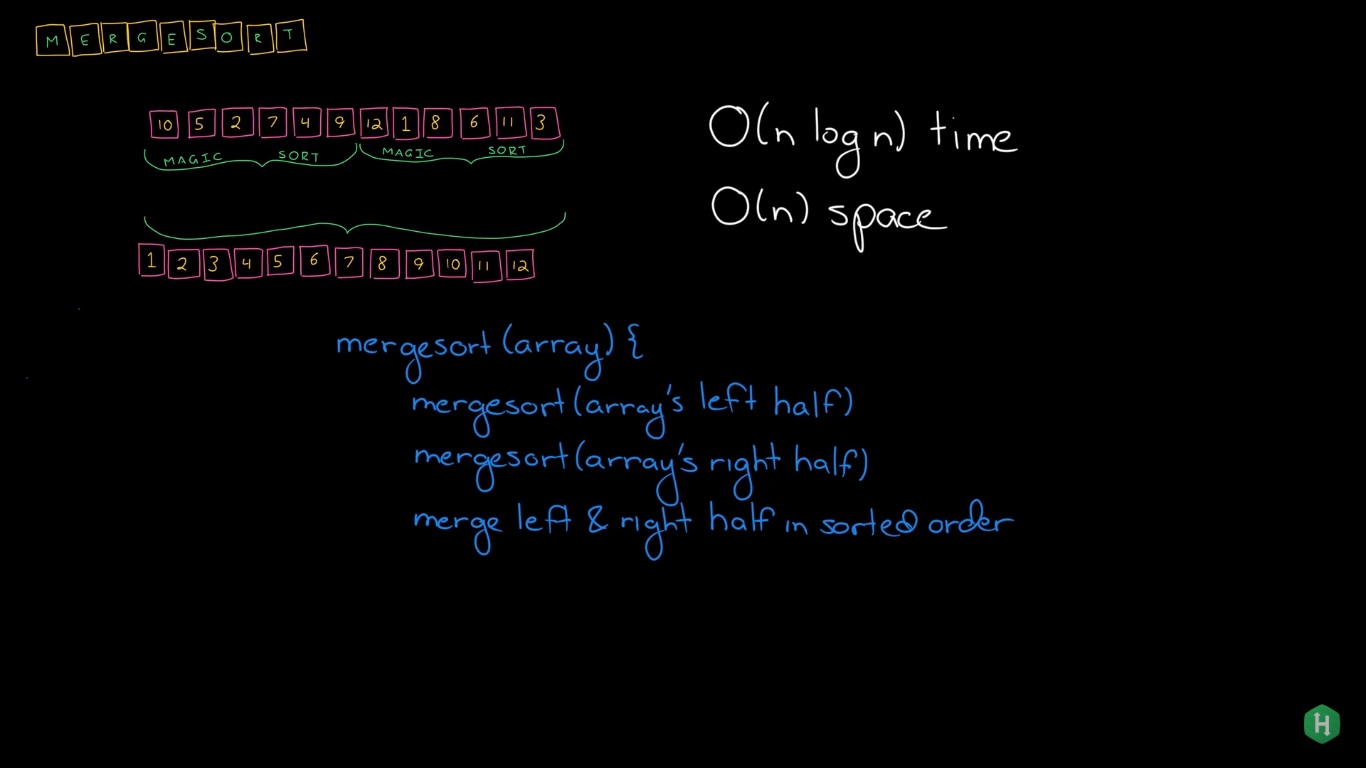 MERGESORT
10 5 2 7 4 9 12 1 8 6 11 3
MAGIC SORT MAGIC SORT
1 2 3 4 5 6 7 8 9 10 11 12
O(n log n) time
O(n) space
mergesort(array) {
mergesort(array's left half)
mergesort(array's right half)
merge left & right half in sorted order
H